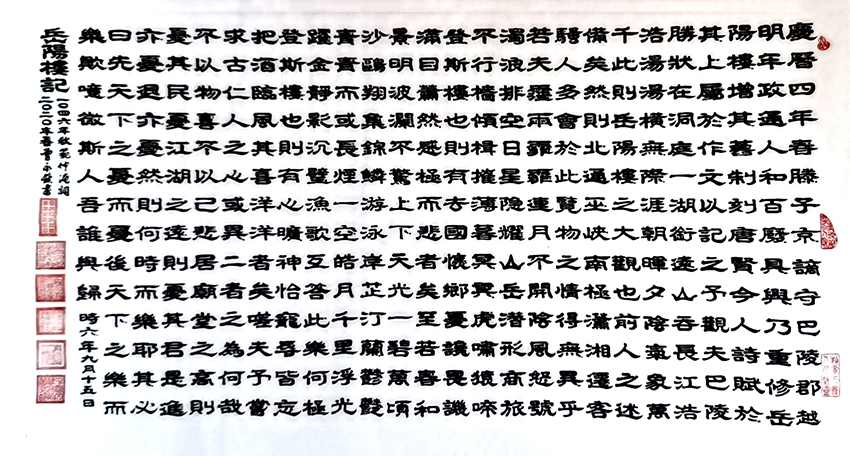 慶曆四年春滕子京謫守巴陵郡越
明年政通人和百廢具興乃重修岳
陽樓增其舊制刻唐賢今人詩賦於
其上屬於作文以記之予觀夫巴陵
勝狀在洞庭一湖銜遠山吞長江浩
浩湯湯橫無際涯朝暉夕陰氣象萬
千此則岳陽樓之大觀也前人之述
備矣然則北通巫峽南極瀟湘遷客
騷人多會於此覽物之情得無異乎
若夫霪雨霏霏連月不開陰風怒號
濁浪排空日星隱耀山岳潛形商旅
不行檣傾楫摧薄暮冥冥虎嘯猿啼
登斯樓也則有去國懷鄉憂讒畏譏
滿目蕭然感極而悲者矣至若春和
景明波瀾不驚上下天光一碧萬頃
沙鷗翔集錦鱗游泳岸芷汀蘭鬱鬱
青青而或長煙一空皓月千里浮光
躍金靜影沉璧漁歌互答此樂何極
登斯樓也則有心曠神怡寵辱皆忘
把酒臨風其喜洋洋者矣嗟夫予嘗
求古仁人之心或異二者之為何哉
不以物喜不以己悲居廟堂之高則
憂其民憂江湖之遠則憂其君是進
亦憂退亦憂然則何時而樂耶其必
曰先天下之憂而憂後天下之樂而
樂歟噫微斯人吾誰與歸時六年九月十五日
岳陽樓記
一〇四六年秋范仲淹詞
二〇二〇年春